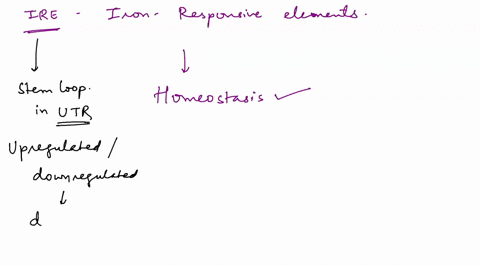 IRE - Iron- Responsive elements.
Stem loop.
in UTR
Homeostasis
Upregulated /
downregulated
d